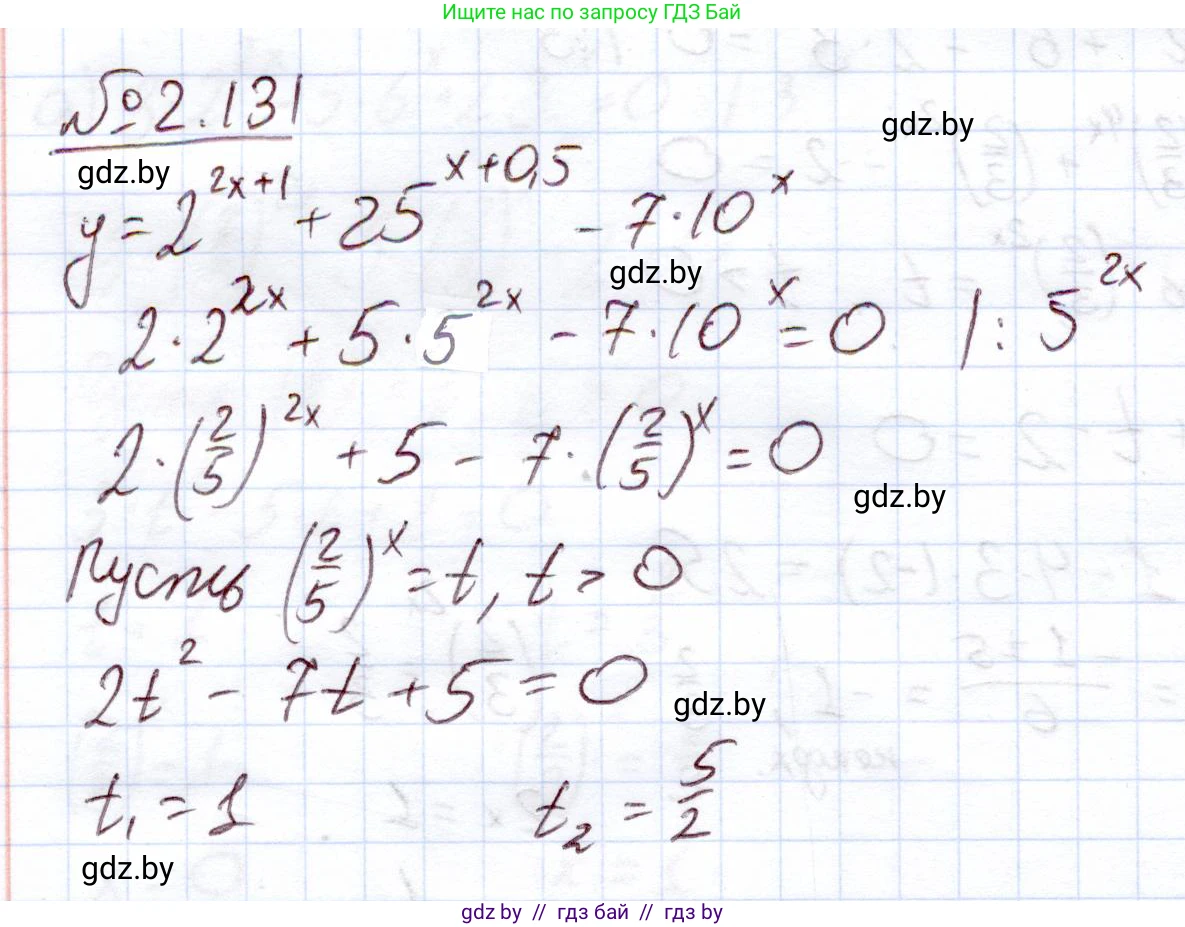 Ищите нас по запросу ГДЗ Бай
№ 2.131
gdz.by
gdz.by
y = 2^{2x+1} + 25^{x+0,5} - 7·10^x
gdz.by
2·2^{2x} + 5·5^{2x} - 7·10^x = 0 |: 5^{2x}
2·(2/5)^{2x} + 5 - 7·(2/5)^x = 0
gdz.by
Пусть (2/5)^x = t, t > 0
2t² - 7t + 5 = 0
gdz.by
t₁ = 1 t₂ = 5/2
gdz.by
gdz by // гдз бай // гдз by